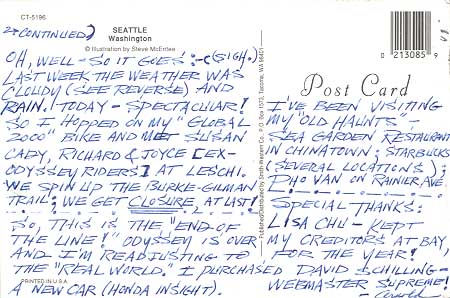 CT-5196
2=CONTINUED)
SEATTLE
Washington
© Illustration by Steve McEntee
OH, WELL-SO IT GOES :-( (SIGH.)
LAST WEEK THE WEATHER WAS
CLOUDY (SEE REVERSE) AND
RAIN. TODAY - SPECTACULAR!
SO I HOPPED ON MY "GLOBAL
2000" BIKE AND MET SUSAN
CADY, RICHARD & JOYCE [EX-
ODYSSEY RIDERS] AT LESCHI.
WE SPIN UP THE BURKE-GILMAN
TRAIL; WE GET CLOSURE, AT LAST!
SO, THIS IS THE "END OF
THE LINE!" ODYSSEY IS OVER
AND I'M READJUSTING TO
THE "REAL WORLD." I PURCHASED
A NEW CAR (HONDA INSIGHT).
PRINTED IN U.S.A.
Published/Distributed by Smith-Western Co., P.O. Box 1573, Tacoma, WA 98401
0 213085 9
Post Card
I'VE BEEN VISITING
MY "OLD HAUNTS" -
SEA GARDEN RESTAURANT
IN CHINATOWN; STARBUCKS
(SEVERAL LOCATIONS);
PHO VAN ON RAINIER AVE.
SPECIAL THANKS:
LISA CHU - KEPT
MY CREDITORS AT BAY,
FOR THE YEAR!
DAVID SCHILLING-
WEBMASTER SUPREME!